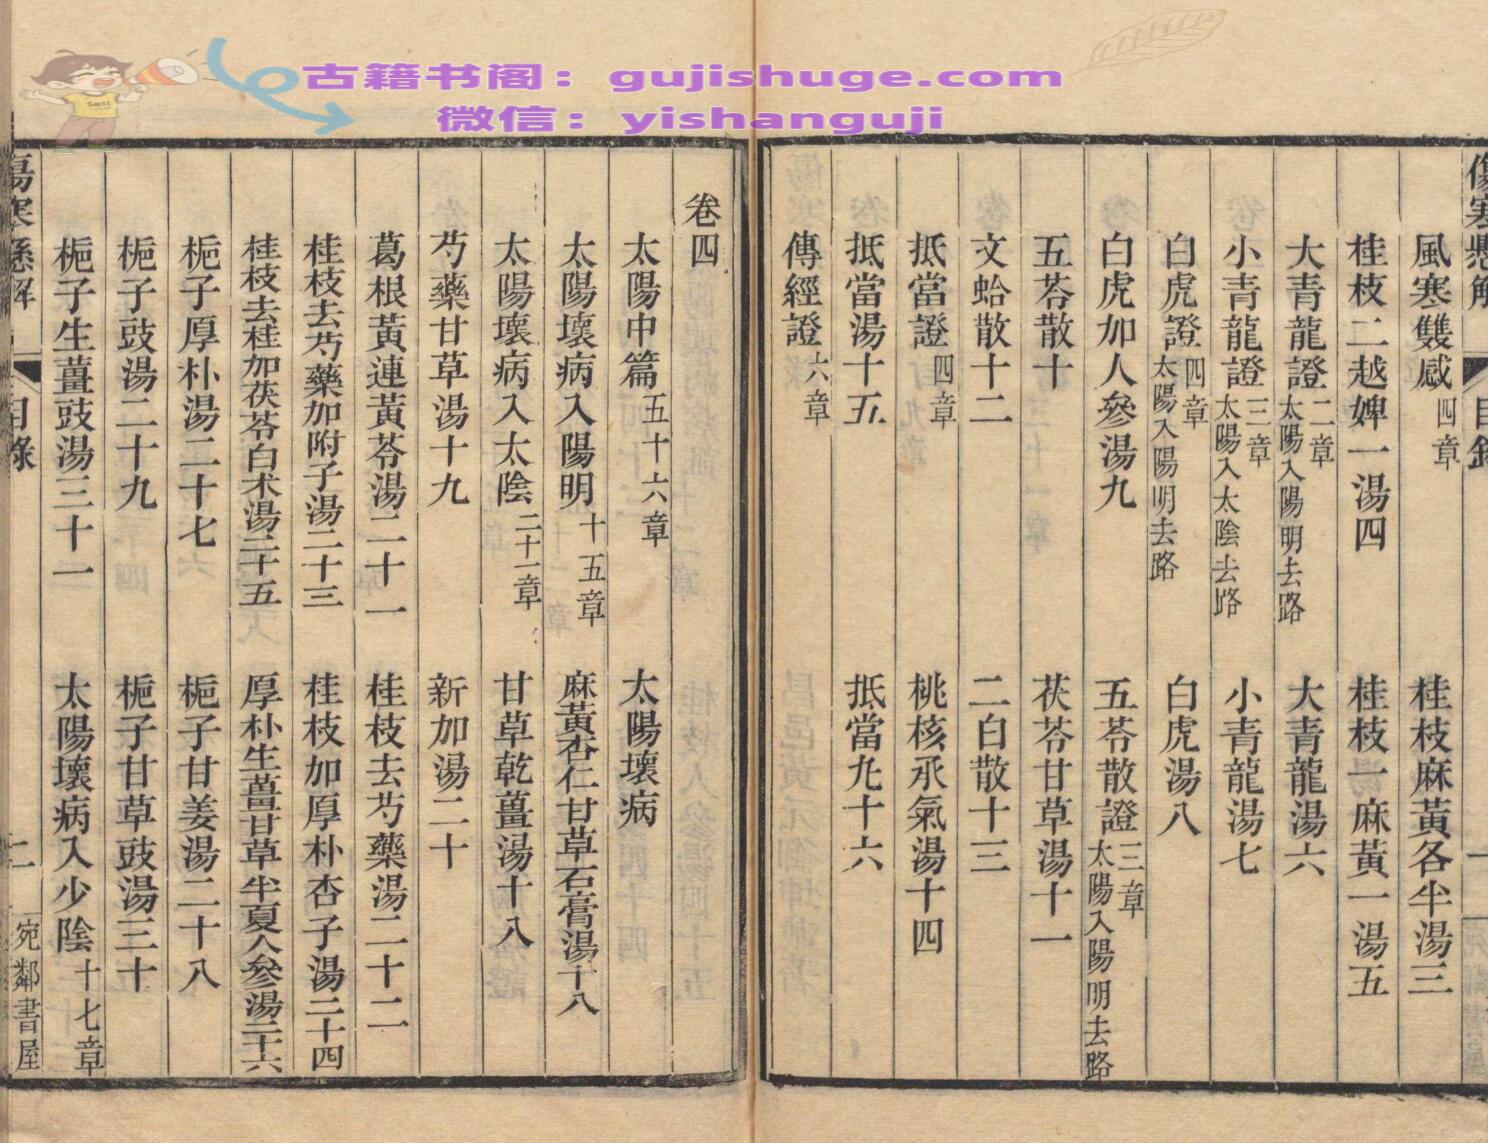 古籍书阁：gujishuge.com
微信：yishanguji
目錄
風寒雙感四章
桂枝麻黃各半湯三
桂枝二越婢一湯四
桂枝一麻黃一湯五
大青龍證二章太陽入陽明去路
大青龍湯六
小青龍證三章太陽入太陰去路
小青龍湯七
白虎證四章太陽入陽明去路
白虎湯八
白虎加人參湯九
五苓散證三章太陽入陽明去路
五苓散十
茯苓甘草湯十一
文蛤散十二
二白散十三
抵當證四章
桃核承氣湯十四
抵當湯十五
抵當九十六
傳經證六章
卷四
太陽中篇五十六章
太陽壞病
太陽壞病入陽明十五章
麻黃杏仁甘草石膏湯十八
太陽壞病入太陰二十一章
甘草乾薑湯十八
芍藥甘草湯十九
新加湯二十
葛根黃連黃芩湯二十一
桂枝去芍藥湯二十二
桂枝去芍藥加附子湯二十三
桂枝加厚朴杏子湯二十四
桂枝去桂加茯苓白术湯二十五
厚朴生薑甘草半夏人參湯二十六
梔子厚朴湯二十七
梔子甘姜湯二十八
梔子豉湯二十九
梔子甘草豉湯三十
梔子生薑豉湯三十一
太陽壞病入少陰十七章
傷寒懸解
目錄
二
宛鄰書屋